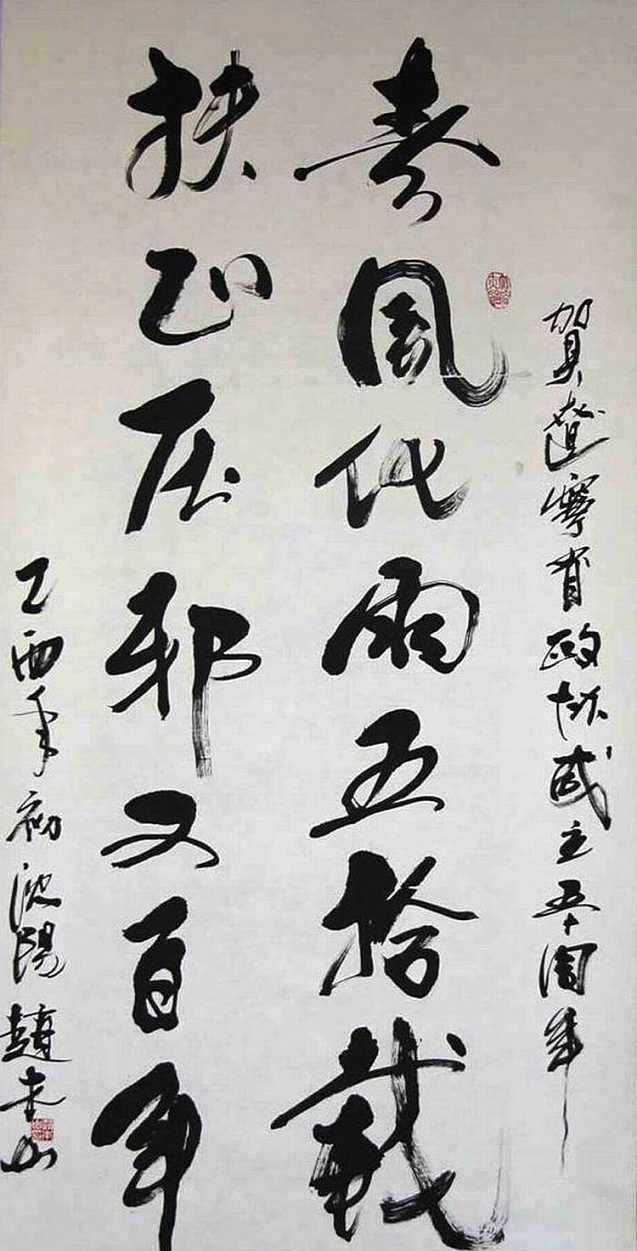 賀遼寧省政協成立五十周年
春風代雨五拾載
扶正压邪又百年
乙酉年初沈陽趙山